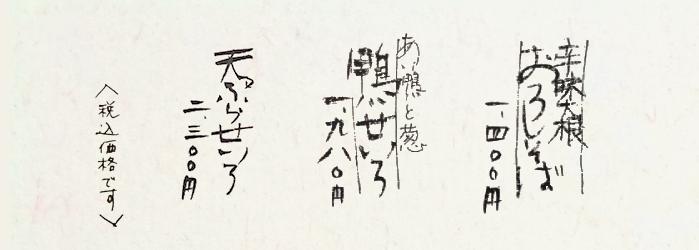 辛味大根
おろしそば
一、四〇〇円
あい鴨と葱
鴨せいろ
一、九八〇円
天ぷらせいろ
二、三〇〇円
〈税込価格です〉